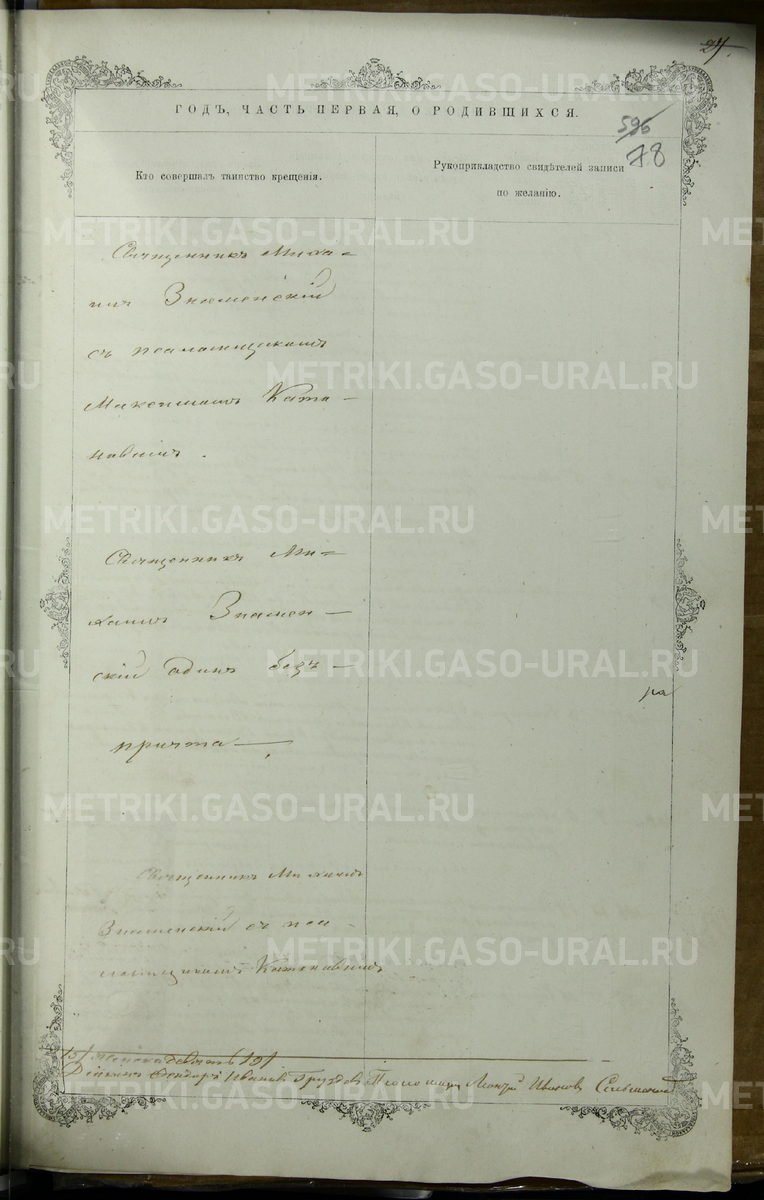 27.
ГОДЪ, ЧАСТЬ ПЕРВАЯ, О РОДИВШИХСЯ.
596
78
Кто совершалъ таинство крещенія.
Рукоприкладство свидѣтелей записи
по желанію.
Священникъ Миха-
илъ Знаменскій
съ псаломщикомъ
Максимомъ Ката-
новымъ.
Священникъ Ми-
хаилъ Знамен-
скій одинъ безъ-
причта
Священникъ Михаилъ
Знаменскій съ пса-
ломщикомъ Катановымъ
Иванов
METRIKI.GASO-URAL.RU